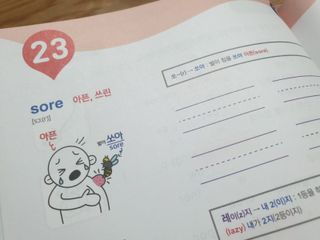 23
sore 아픈, 쓰린
[쏘어]
아픈
벌이 쏘아
sore
쏘~(r) → 쏘아 : 벌이 침을 쏘아 아픈(sore)
레이(z)지 → 내 2(이)지 : 1등을
(lazy) 내가 2지(2등이지)